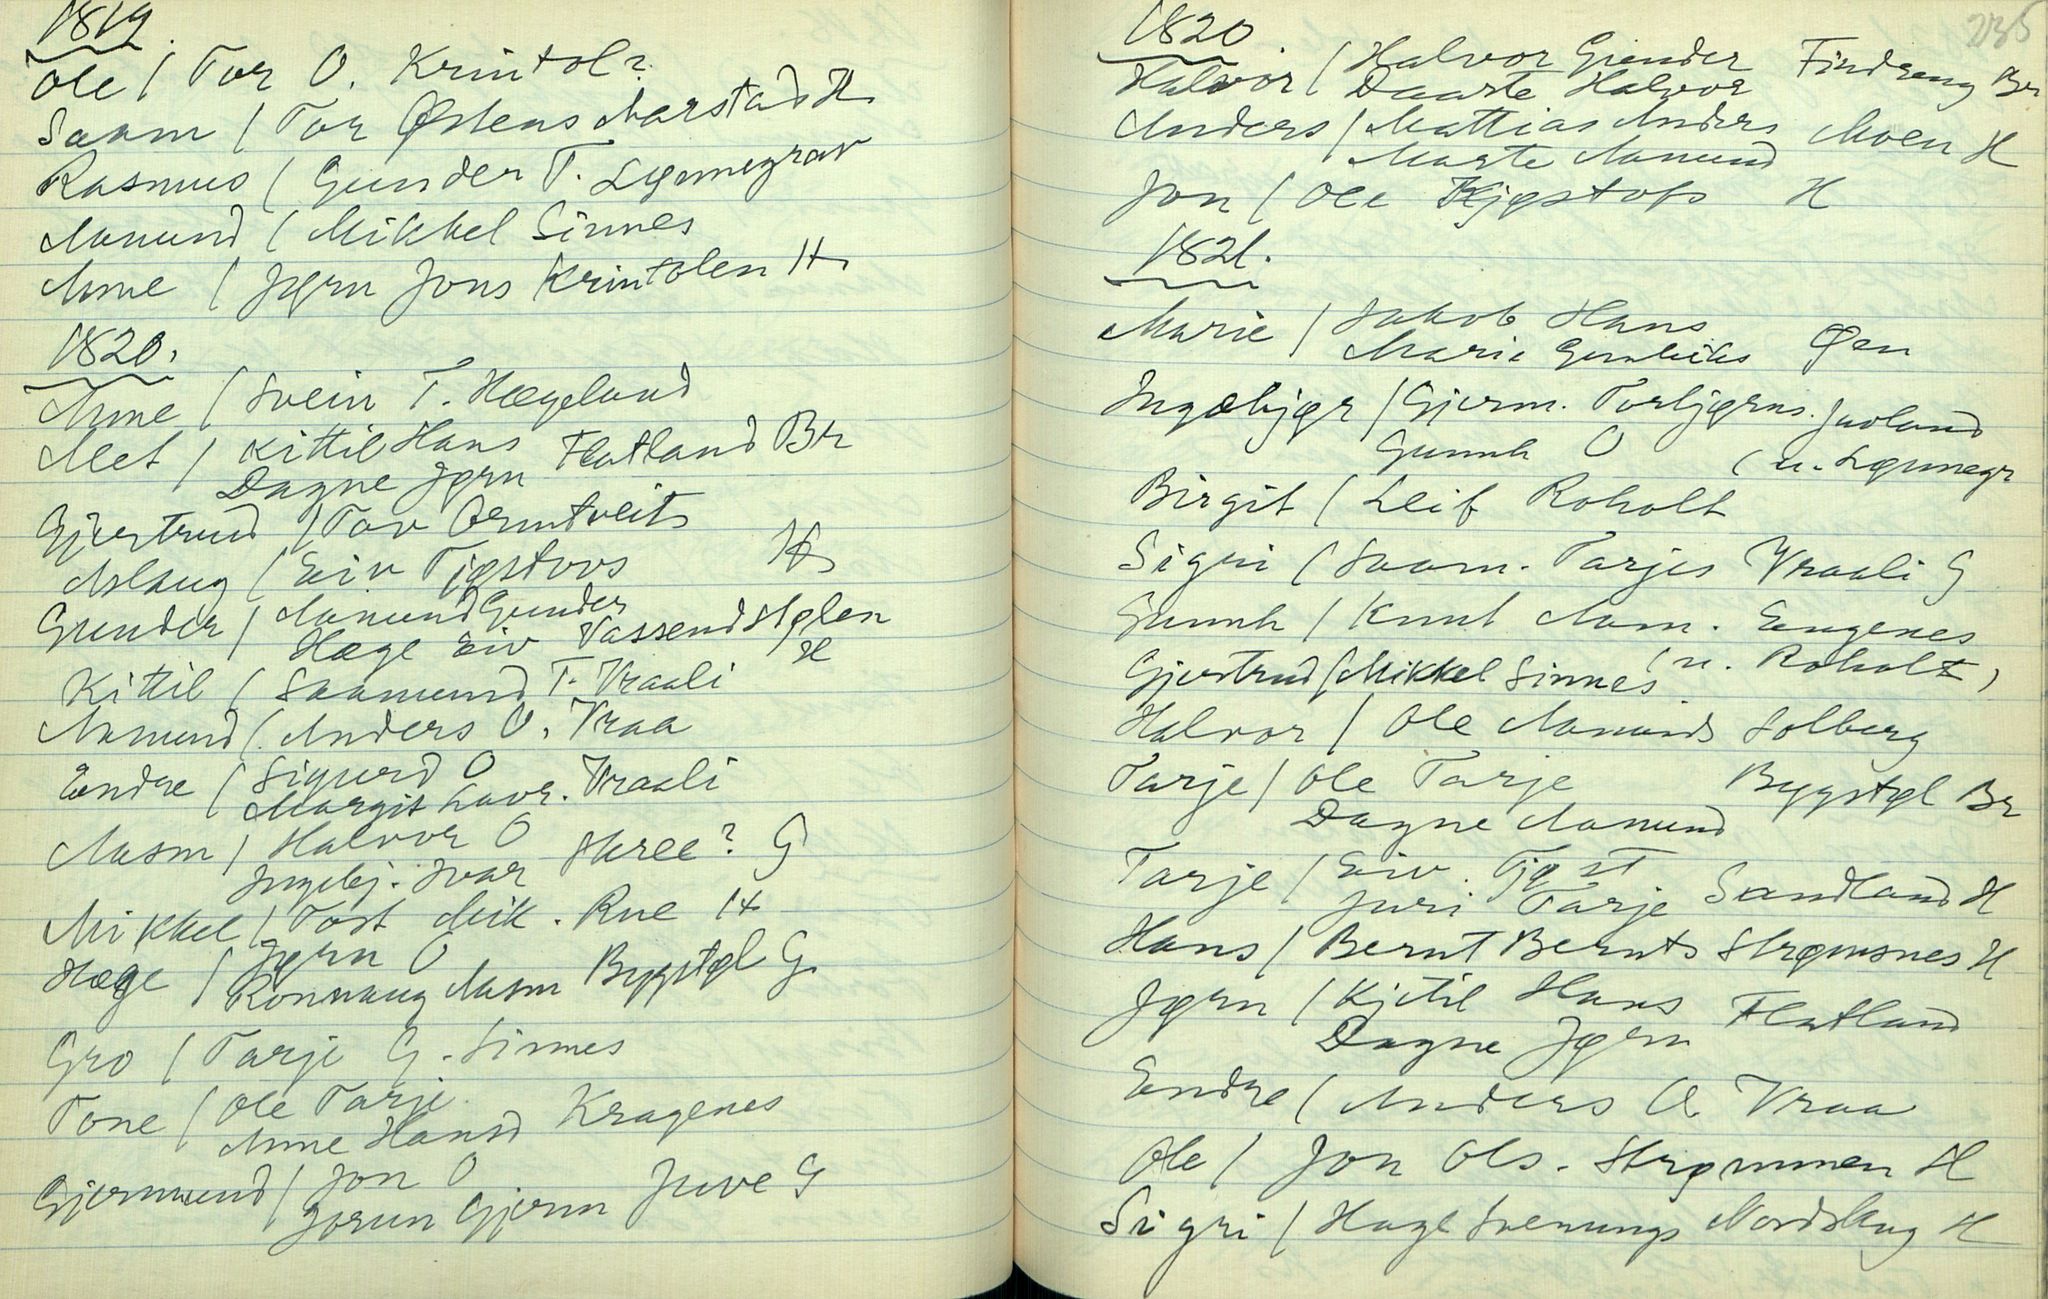 1819.
Ole / Tor O. Krintol?
Saam / Tor Østens Marstad H
Rasmus / Gunder T. Lønnegrav
Aamund / Mikkel Sinnes
Anne / Jørn Jons Krintolen H
1820.
Anne / Svein T. Hægeland
Met / Kittil Hans Flatland Br
Dagne Jørn
Gjertrud / Tov Ormtveit
Aslaug / Eiv Tjøstovs H
Gunder / Aamund Gunder
Hæge Eiv Vassend Hølen H
Kittil / Saamund T. Vraali
Aamund / Anders O. Vraa
Endre / Sigurd O
Margit Lavr. Vraali
Aasm / Halvor O
Ingebj. Ivar Skree? G
Mikkel / Tost Mik. Rue H
Hæge / Jørn O
Ronnaug Aasm Bygstøl G
Gro / Tarje G. Sinnes
Tone / Ole Tarje
Anne Hansd Kragenes
Gjermund / Jon O
Jorun Gjerm Juve G
235
1820.
Halvor / Halvor Gunder Findreng Br
Daarte Halvor
Anders / Mattias Anders Moen H
Marte Aamund
Jon / Ole Kjøstofs H
1821.
Marie / Jakob Hans Øen
Marie
Ingebjør / Gjerm. Torbjørns. Juvland
Gunnh O (n. Lønnegr
Birgit / Leif Roholt
Sigri / Saam. Tarjes Vraali G
Gunnh / Knut Aam. Eugenes
(n. Roholt)
Gjertrud / Mikkel Sinnes
Halvor / Ole Aamunds Solberg
Tarje / Ole Tarje Bygstøl Br
Dagne Aamund
Tarje / Eiv. Tjøst
Juri Tarje Sandland H
Hans / Bernt Bernts Strømsnes H
Jørn / Kjetil Hans Flatland
Dagne Jørn
Endre / Anders O. Vraa
Ole / Jon Ols. Strømmen H
Sigri / Hage Svenungs Nordskug H